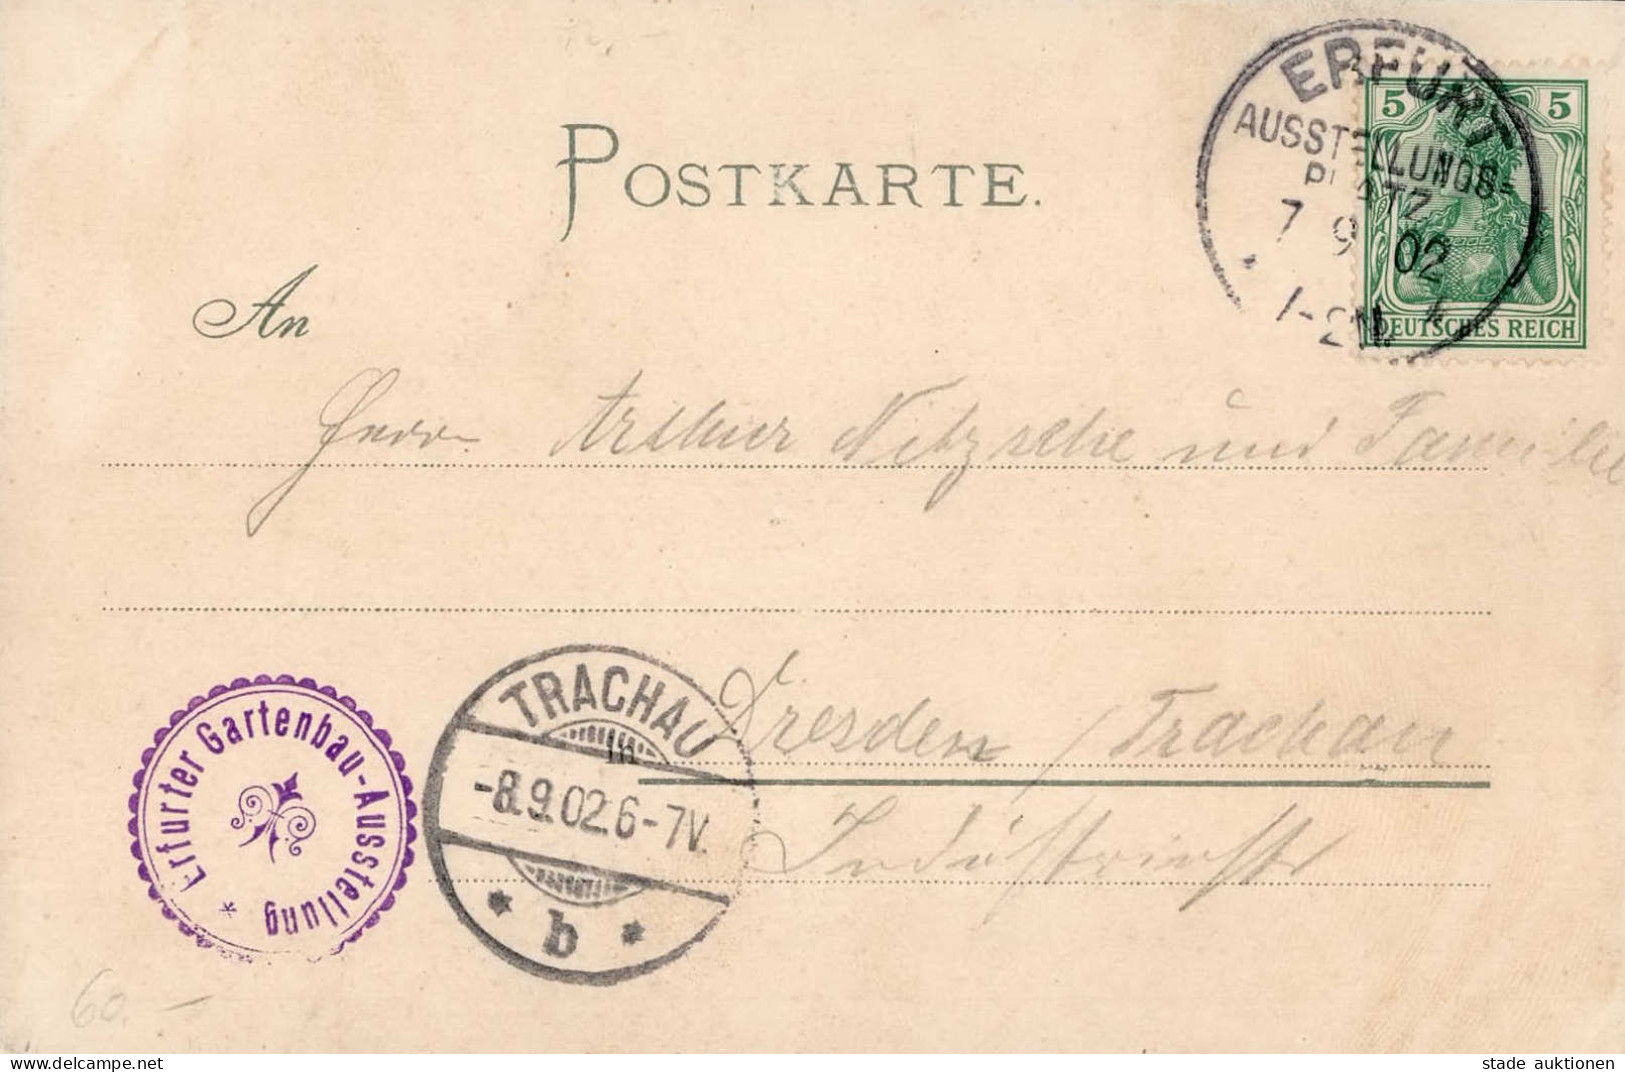 POSTKARTE.
ERFURT
AUSSTELLUNGS-
PLATZ
7 9 02
1-2N.
5 5
DEUTSCHES REICH
An
Herrn Arthur Nitzsche und Familie
TRACHAU
in
-8.9.02.6-7V.
* b *
Dresden / Trachau
Industriestr
Erfurter Gartenbau-Ausstellung *
60.-
www.delcampe.net
stade auktionen